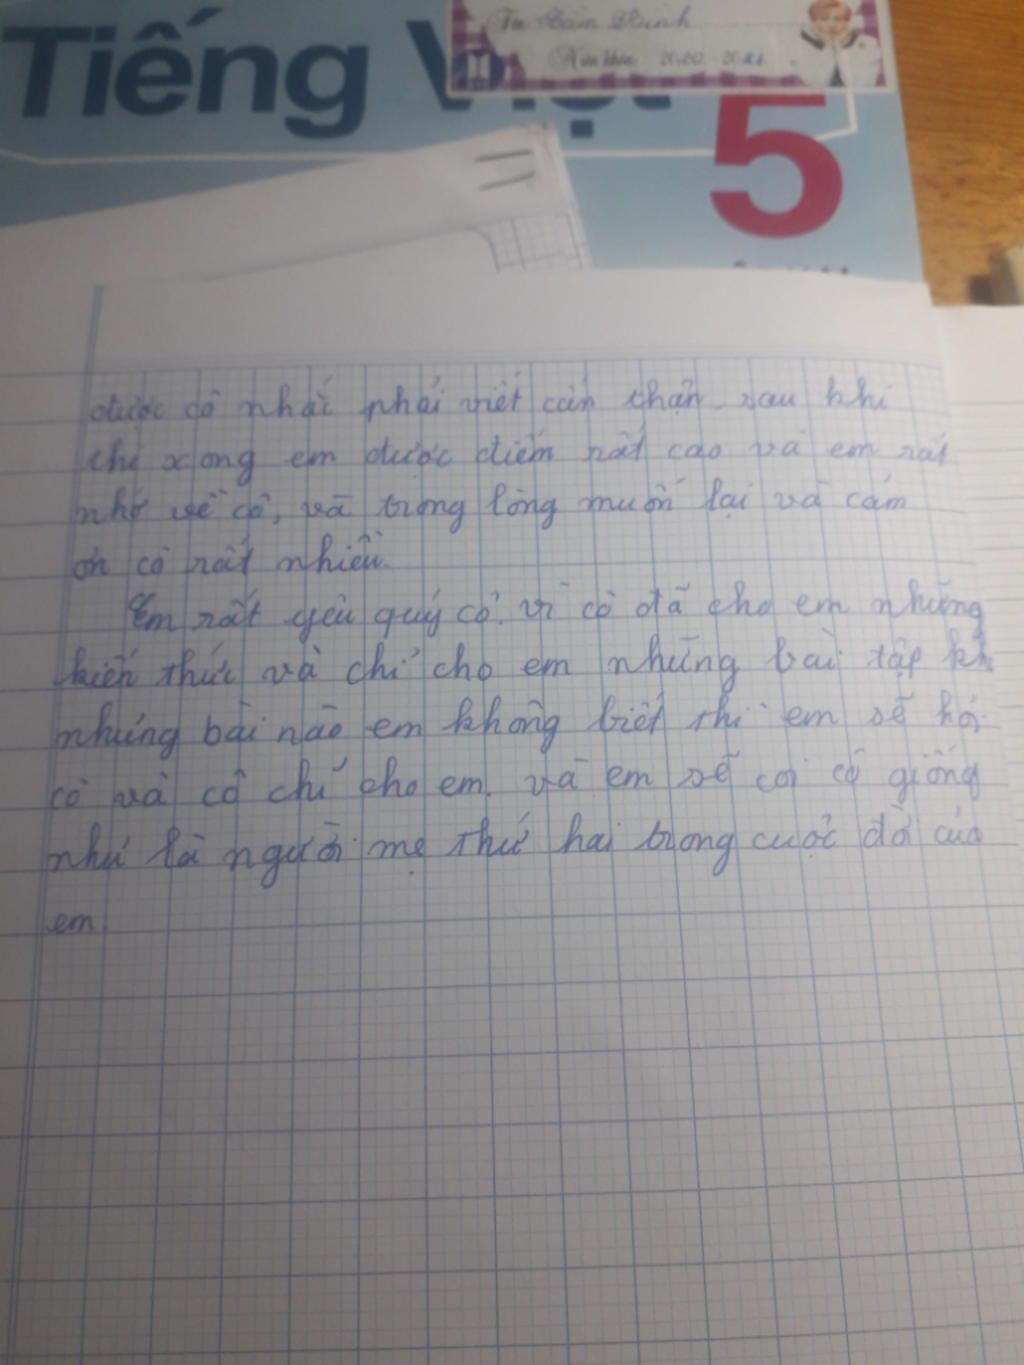 Tiếng Việt
5
2020 - 2021
được cô nhắc phải viết cẩn thận sau khi
thi xong em được điểm rất cao và em rất
nhớ về cô, và trong lòng muốn lại và cám
ơn cô rất nhiều.
Em rất yêu quý cô. vì cô đã cho em những
kiến thức và chỉ cho em những bài tập
những bài nào em không biết thì em sẽ hỏi
cô và cô chỉ cho em. và em sẽ coi cô giống
như là người mẹ thứ hai trong cuộc đời của
em